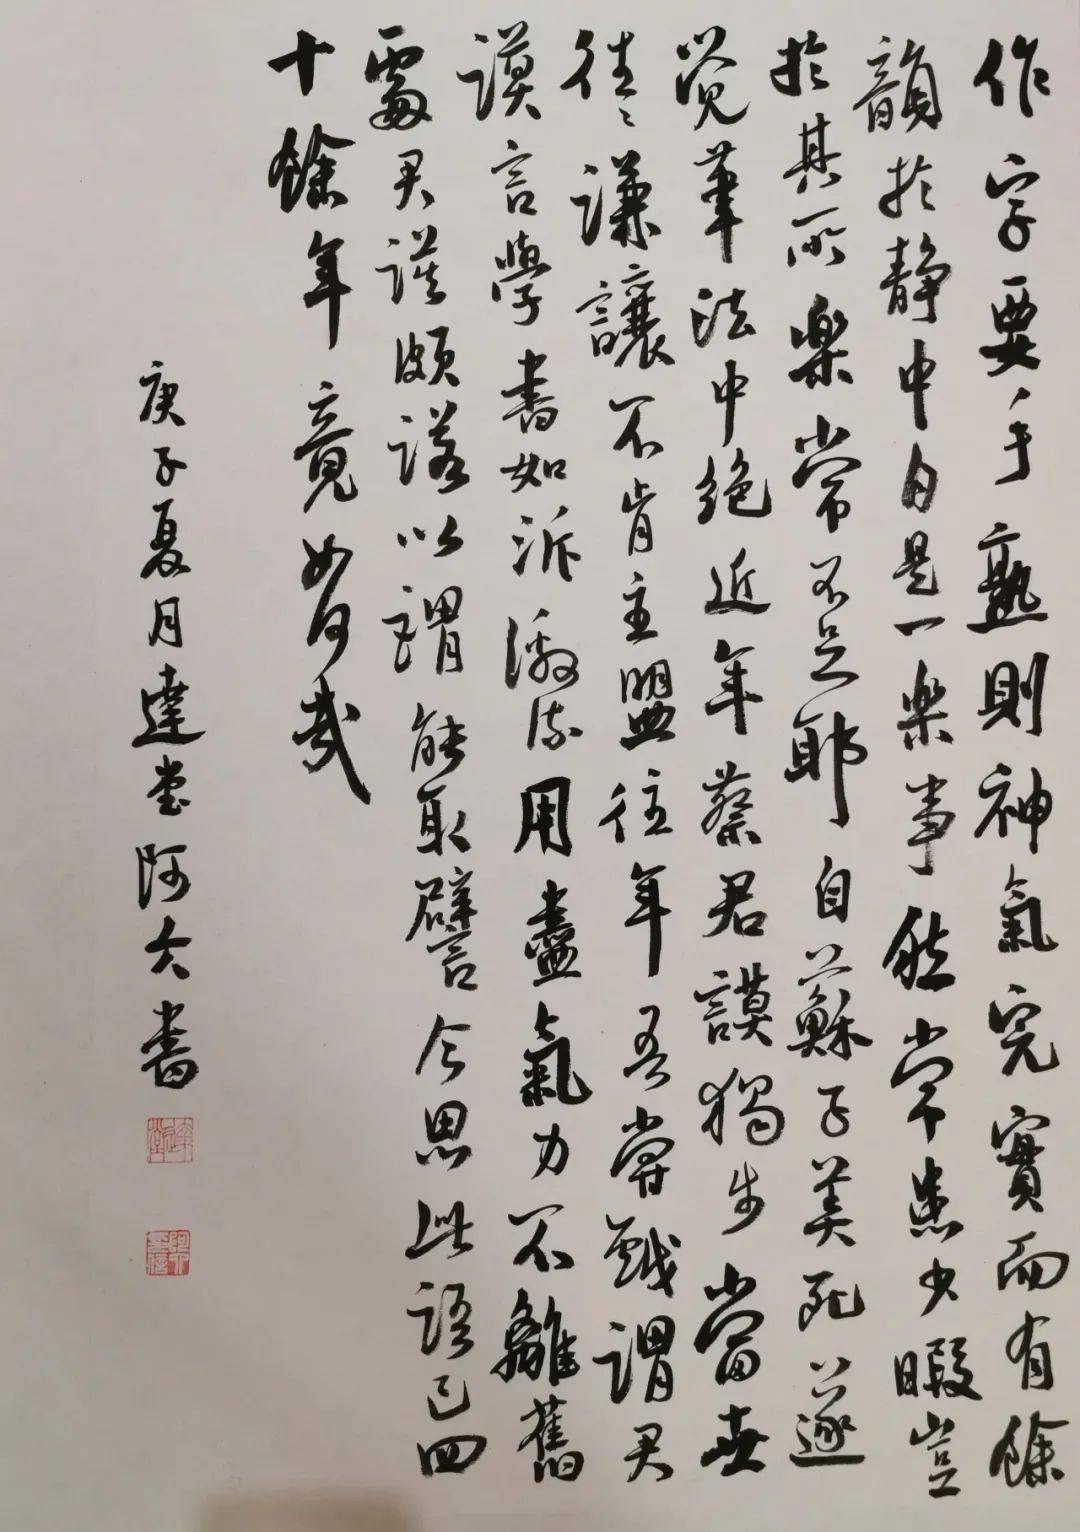 作字要手熟則神氣完實而有餘
韻於静中自是一樂事然常患少暇豈
於其所樂常不足耶自蘇子美死遂
覚筆法中絶近年蔡君謨獨步當世
往々謙讓不肯主盟往年吾嘗戯謂君
謨言學書如泝激流用盡氣力不離舊
處君謨頗諾以謂能取譬今思此語已四
十餘年竟如何哉
庚子夏月達堂阿六書
達堂